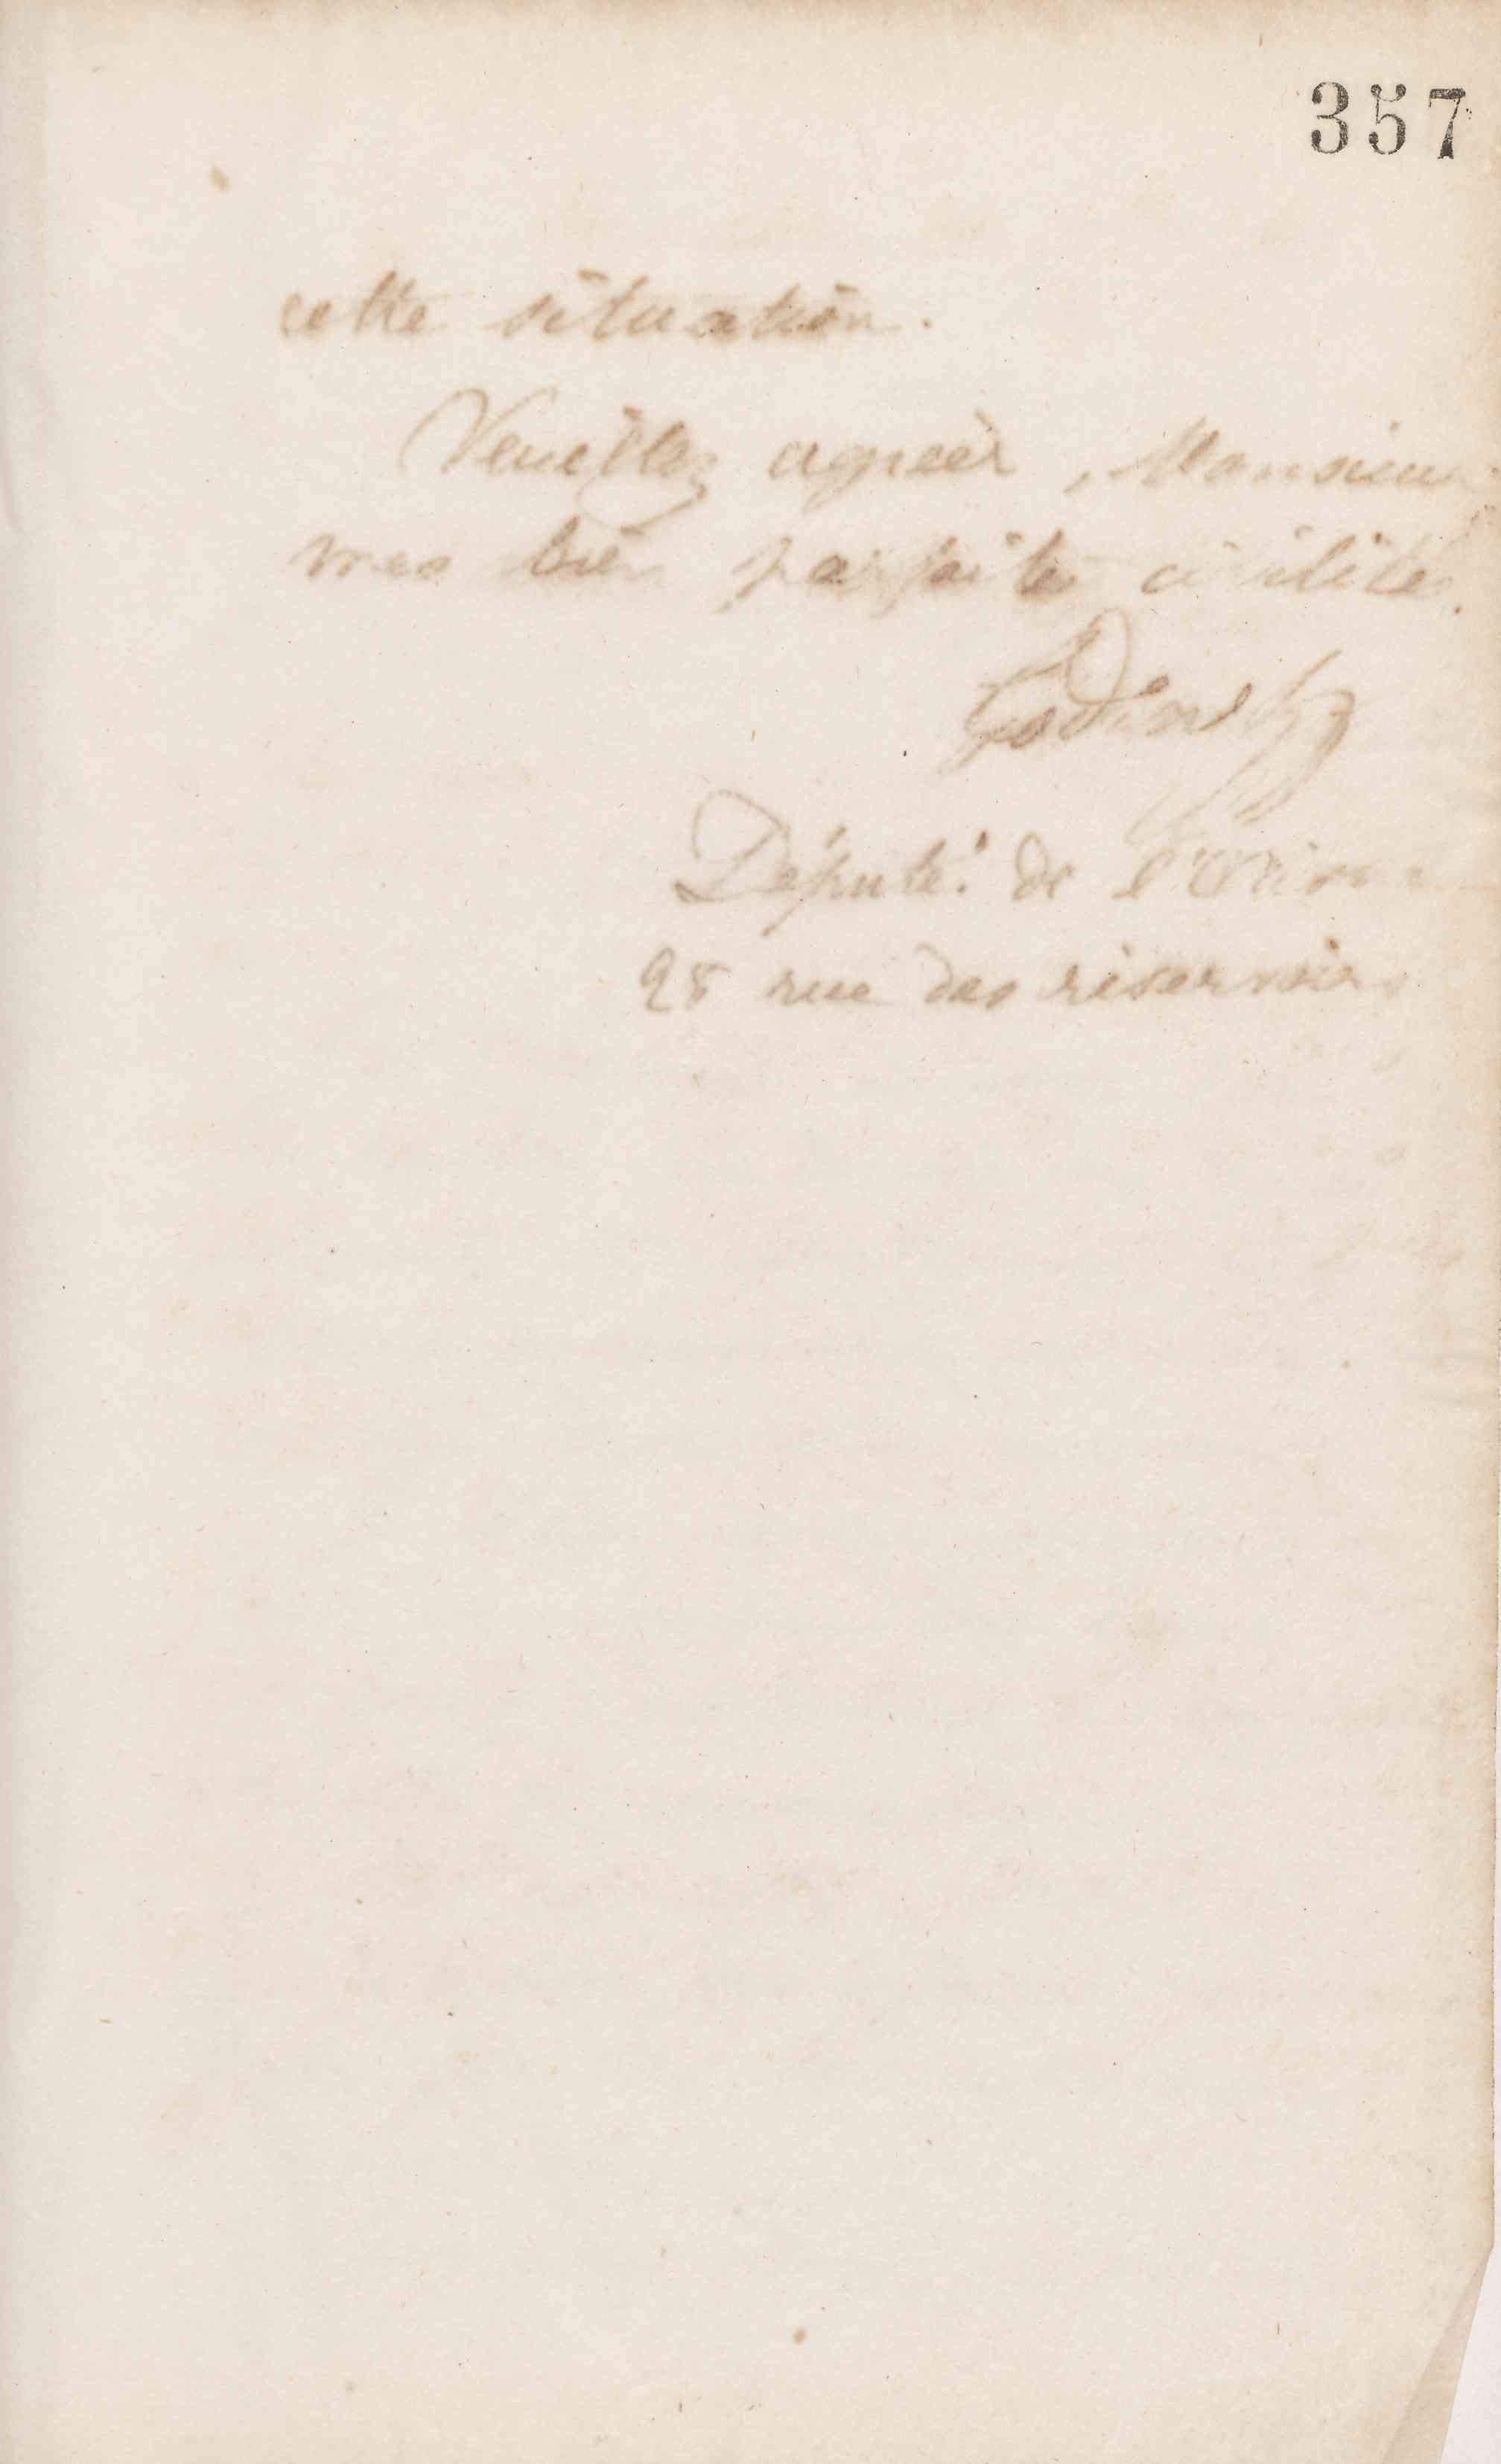 357
cette situation.
Veuillez agréer, Monsieur
mes bien parfaites civilités.
Godin
Député de l'Aisne
28 rue des réservoirs